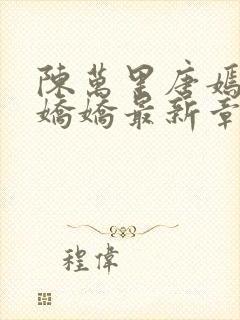 陳萬里唐嫣
嬌嬌最新章
程偉